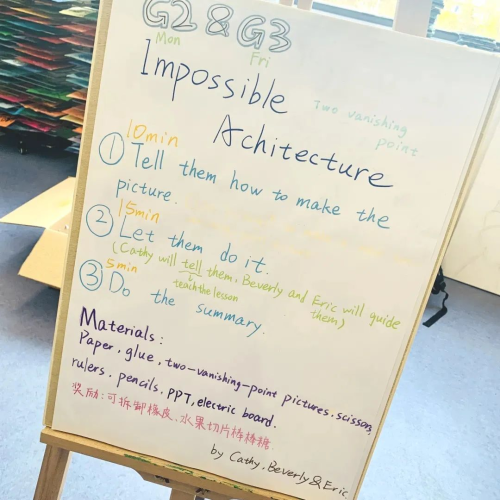 G2 & G3
Mon
Fri
Impossible
Two vanishing
point
Achitecture
10min
① Tell them how to make the
picture.
15min
② Let them do it.
(Cathy will tell them. Beverly and Eric will guide
teach the lesson
them)
5min
③ Do the summary.
Materials:
Paper, glue, two-vanishing-point pictures, scissors,
rulers, pencils, PPT, electric board.
奖励:可拆卸橡皮、水果切片棒棒糖.
by Cathy, Beverly & Eric